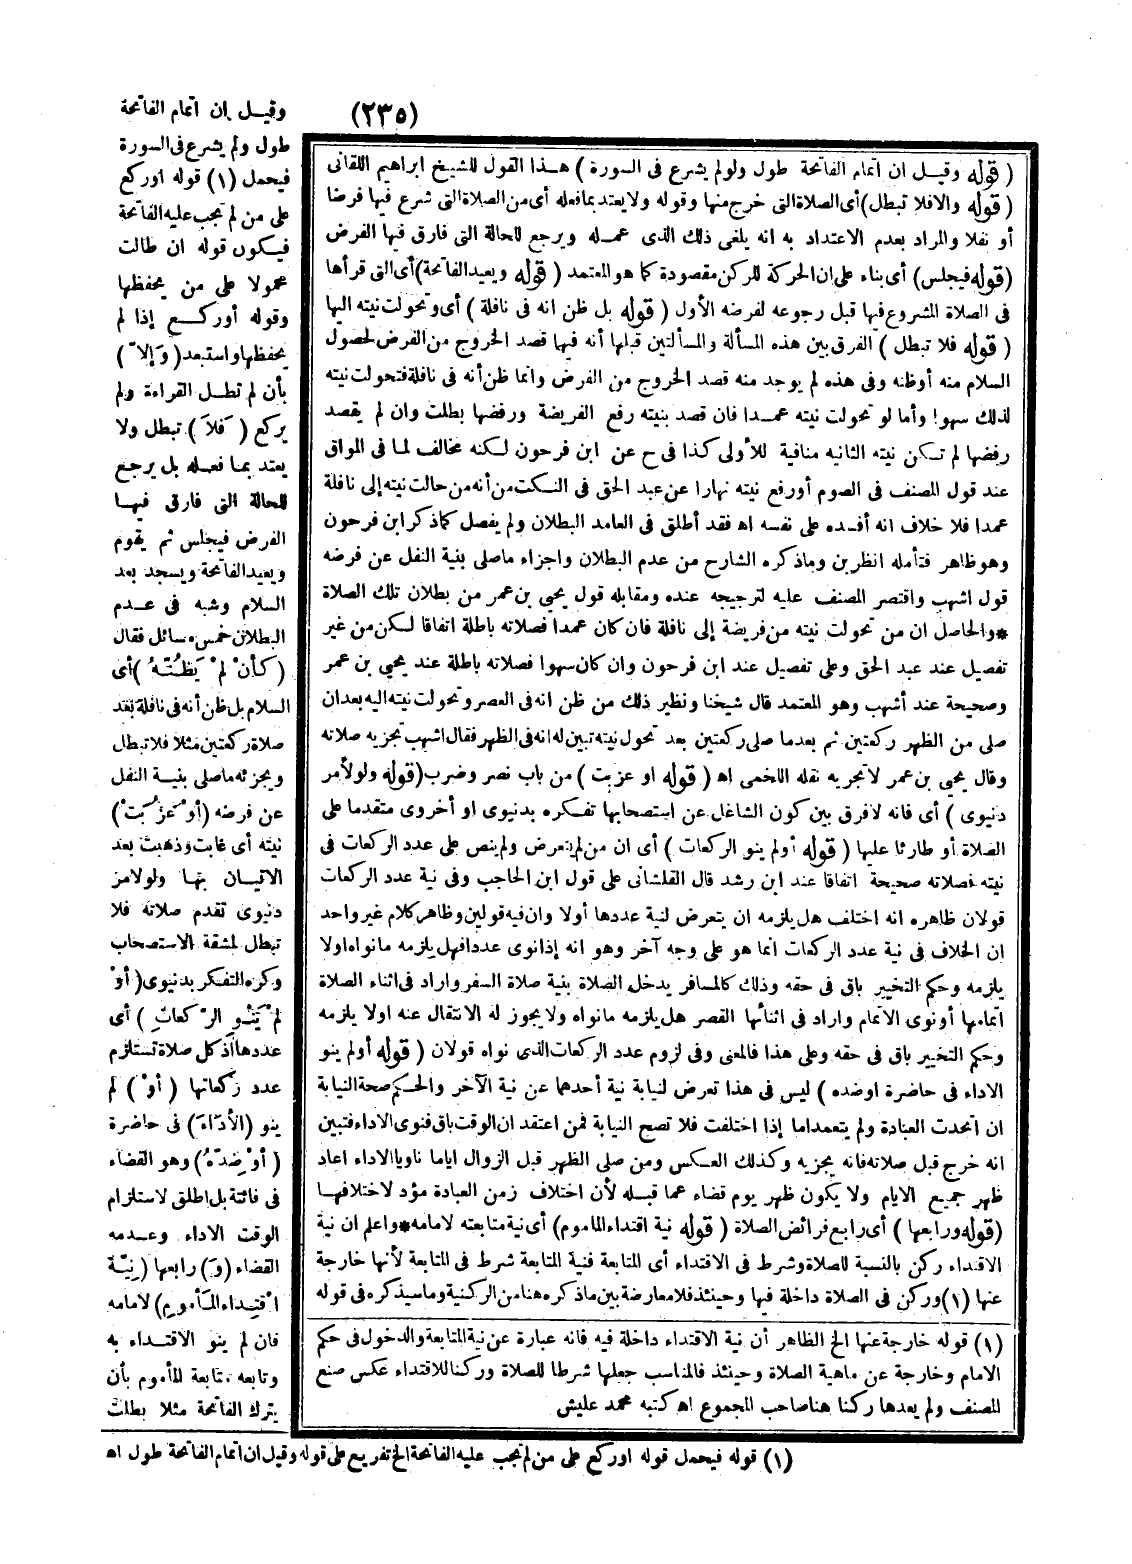 (٢٣٥)
( قوله وقيل ان اتمام الفاتحة طول ولولم يشرع فى السورة ) هذا القول للشيخ ابراهيم اللقانى
( قوله والافلا تبطل) أى الصلاة التى خرج منها وقوله ولا يعتد بما فعله أى من الصلاة التى شرع فيها فرضا
أو نفلا والمراد بعدم الاعتداد به انه يلغى ذلك الذى عمله ويرجع للحالة التى فارق فيها الفرض
(قوله فيجلس) أى بناء على ان الحركة للركن مقصودة كما هو المعتمد ( قوله ويعيد الفاتحة) أى التى قرأها
فى الصلاة المشروع فيها قبل رجوعه لفرضه الأول ( قوله بل ظن انه فى نافلة ) أى وتحولت نيته اليها
( قوله فلا تبطل ) الفرق بين هذه المسألة والمسألتين قبلها أنه فيها قصد الخروج من الفرض لحصول
السلام منه أوظنه وفى هذه لم يوجد منه قصد الخروج من الفرض وانما ظن أنه فى نافلة فتحولت نيته
لذلك سهوا وأما لو تحولت نيته عمدا فان قصد بنيته رفع الفريضة ورفضها بطلت وان لم يقصد
رفضها لم تكن نيته الثانيه منافية للأولى كذا فى ح عن ابن فرحون لكنه مخالف لما فى المواق
عند قول المصنف فى الصوم أورفع نيته نهارا عن عبد الحق فى النكت من أنه من حالت نيته إلى نافلة
عمدا فلا خلاف انه أفسده على نفسه اه فقد أطلق فى العامد البطلان ولم يفصل كما ذكر ابن فرحون
وهو ظاهر فتأمله انظر بن وما ذكره الشارح من عدم البطلان واجزاء ماصلى بنية النفل عن فرضه
قول اشهب واقتصر المصنف عليه لترجيحه عنده ومقابله قول يحي بن عمر من بطلان تلك الصلاة
*والحاصل ان من تحولت نيته من فريضة إلى نافلة فان كان عمدا فصلاته باطلة اتفاقا لكن من غير
تفصيل عند عبد الحق وعلى تفصيل عند ابن فرحون وان كان سهوا فصلاته باطلة عند يحي بن عمر
وصحيحة عند أشهب وهو المعتمد قال شيخنا ونظير ذلك من ظن انه فى العصر وتحولت نيته اليه بعد ان
صلى من الظهر ركعتين ثم بعدما صلى ركعتين بعد تحول نيته تبين له انه فى الظهر فقال اشهب تجزيه صلاته
وقال يحي بن عمر لا تجزيه نقله اللخمى اه ( قوله او عزبت ) من باب نصر وضرب (قوله ولولأمر
دنيوى ) أى فانه لا فرق بين كون الشاغل عن استصحابها تفكره بدنيوى او أخروى متقدما على
الصلاة أو طارئا عليها ( قوله أولم ينو الركعات ) أى ان من لم يتعرض ولم ينص على عدد الركعات فى
نيته فصلاته صحيحة اتفاقا عند ابن رشد قال القلشانى على قول ابن الحاجب وفى نية عدد الركعات
قولان ظاهره انه اختلف هل يلزمه ان يتعرض لنية عددها أولا وان فيه قولين وظاهر كلام غير واحد
ان الخلاف فى نية عدد الركعات انما هو على وجه آخر وهو انه إذا نوى عددا فهل يلزمه مانواه اولا
يلزمه وحكم التخيير باق فى حقه وذلك كالمسافر يدخل الصلاة بنية صلاة السفر واراد فى اثناء الصلاة
اتمامها أو نوى الاتمام واراد فى اثنائها القصر هل يلزمه مانواه ولا يجوز له الانتقال عنه اولا يلزمه
وحكم التخيير باق فى حقه وعلى هذا فالمعنى وفى لزوم عدد الركعات الذى نواه قولان ( قوله أولم ينو
الاداء فى حاضرة اوضده ) ليس فى هذا تعرض لنيابة نية أحدهما عن نية الآخر والحكم صحة النيابة
ان اتحدت العبادة ولم يتعمداما إذا اختلفت فلا تصح النيابة فمن اعتقد ان الوقت باق فنوى الاداء فتبين
انه خرج قبل صلاته فانه يجزيه وكذلك العكس ومن صلى الظهر قبل الزوال اياما ناويا الاداء اعاد
ظهر جميع الايام ولا يكون ظهر يوم قضاء عما قبله لأن اختلاف زمن العبادة مؤد لاختلافها
(قوله ورابعها ) أى رابع فرائض الصلاة ( قوله نية اقتداء المأموم) أى نية متابعته لامامه*واعلم ان نية
الاقتداء ركن بالنسبة للصلاة وشرط فى الاقتداء أى المتابعة فنية المتابعة شرط فى المتابعة لأنها خارجة
عنها (١) وركن فى الصلاة داخلة فيها وحينئذ فلا معارضة بين ماذكره هنا من الركنية وما سيذكره فى قوله
(١) قوله خارجة عنها الخ الظاهر أن نية الاقتداء داخلة فيه فانه عبارة عن نية المتابعة والدخول فى حكم
الامام وخارجة عن ماهية الصلاة وحينئذ فالمناسب جعلها شرطا للصلاة وركنا للاقتداء عكس صنع
المصنف ولم يعدها ركنا هنا صاحب المجموع اه كتبه محمد عليش
وقيل ان اتمام الفاتحة
طول ولم يشرع فى السورة
فيحمل (١) قوله اوركع
على من لم تجب عليه الفاتحة
فيكون قوله ان طالت
محمولا على من يحفظها
وقوله أوركع إذا لم
يحفظها واستبعد (وَإِلاَّ)
بأن لم تطل القراءة ولم
يركع ( فَلاَ ) تبطل ولا
يعتد بما فعله بل يرجع
للحالة التى فارق فيها
الفرض فيجلس ثم يقوم
ويعيد الفاتحة ويسجد بعد
السلام وشبه فى عدم
البطلان خمس مسائل فقال
(كَأَنْ لَمْ يَظُنَّهُ ) أى
السلام بل ظن أنه فى نافلة بعد
صلاة ركعتين مثلا فلا تبطل
ويجزئه ماصلى بنية النفل
عن فرضه (أَوْ عَزُبَتْ)
نيته أى غابت وذهبت بعد
الاتيان بها ولو لامر
دنيوى تقدم صلاته فلا
تبطل لمشقة الاستصحاب
وكره التفكر بدنيوى ( أَوْ
لَمْ يَنْوِ الرَّكَعَاتِ ) أى
عددها إذ كل صلاة تستلزم
عدد ركعاتها ( أَوْ ) لم
ينو (الأَدَاءَ) فى حاضرة
( أَوْ ضِدَّهُ) وهو القضاء
فى فائتة بل اطلق لاستلزام
الوقت الاداء وعدمه
القضاء (وَ) رابعها (نِيَّةُ
اقْتِدَاءِ المَأْمُومِ) لامامه
فان لم ينو الاقتداء به
وتابعه متابعة المأموم بأن
يترك الفاتحة مثلا بطلت
(١) قوله فيحمل قوله اوركع على من لم تجب عليه الفاتحة الخ تفريع على قوله وقيل ان اتمام الفاتحة طول اه